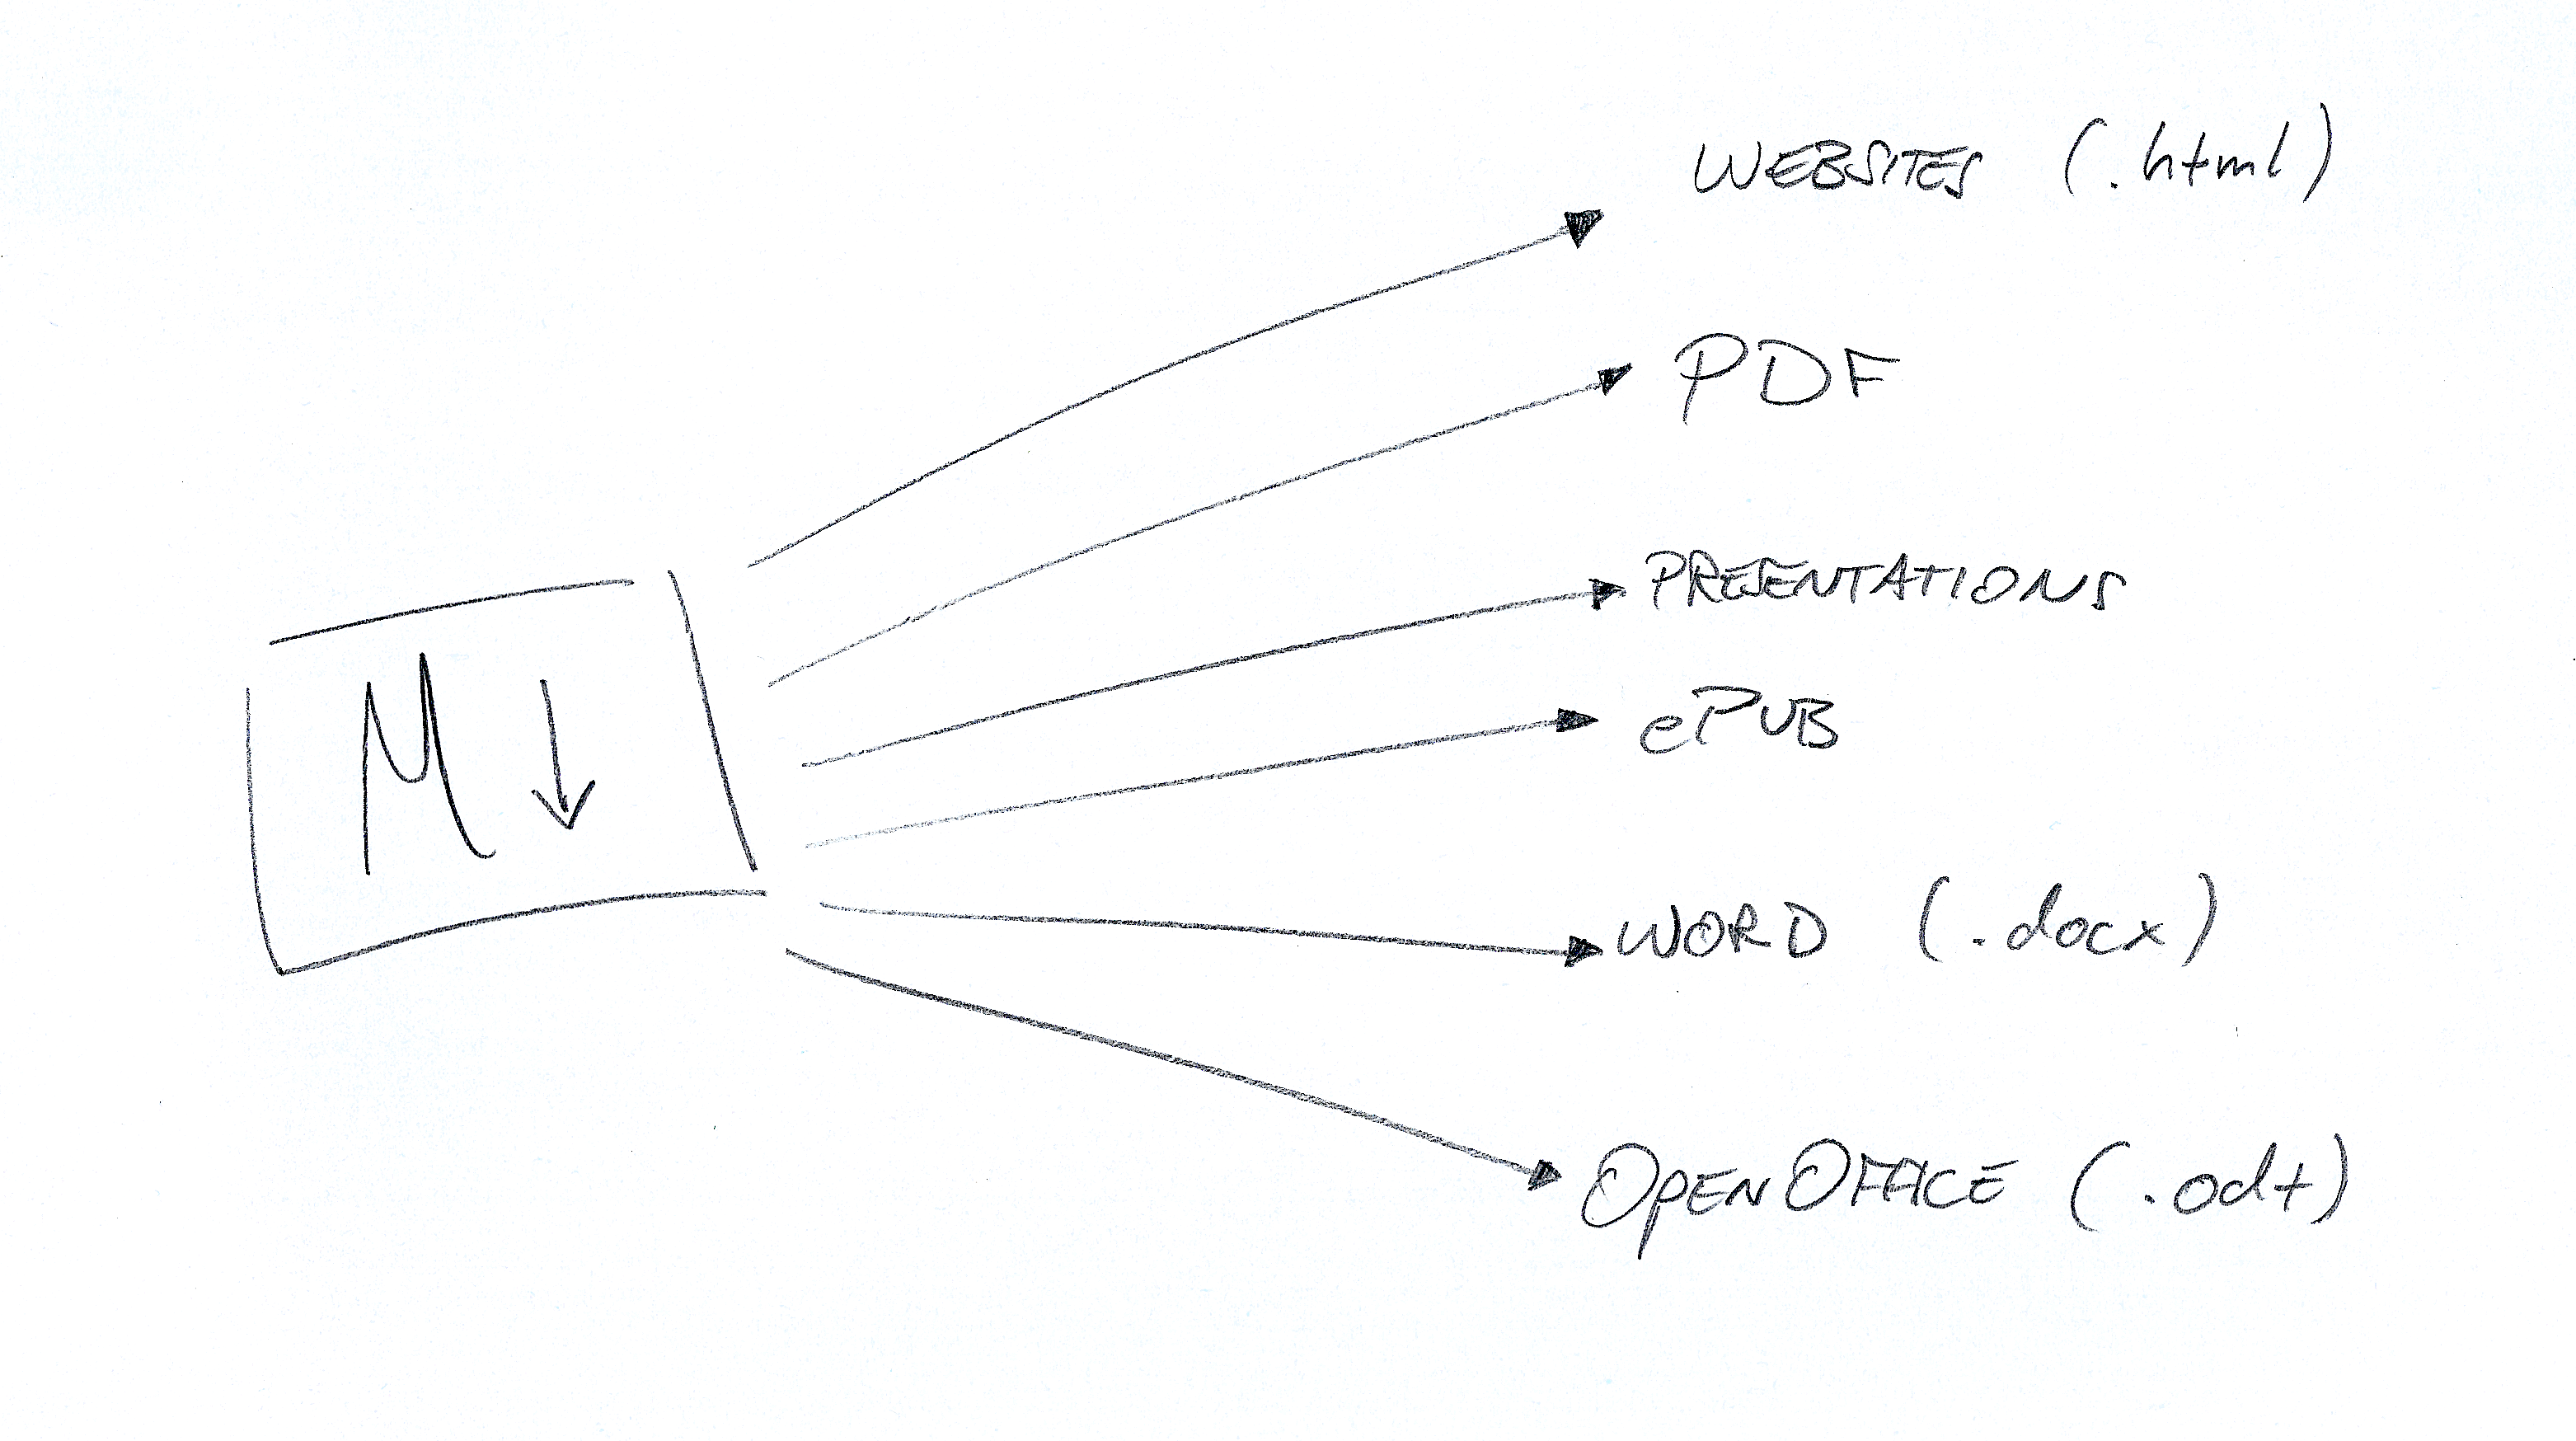 WEBSITES (.html)
PDF
PRESENTATIONS
M↓
ePUB
WORD (.docx)
OPENOFFICE (.odt)